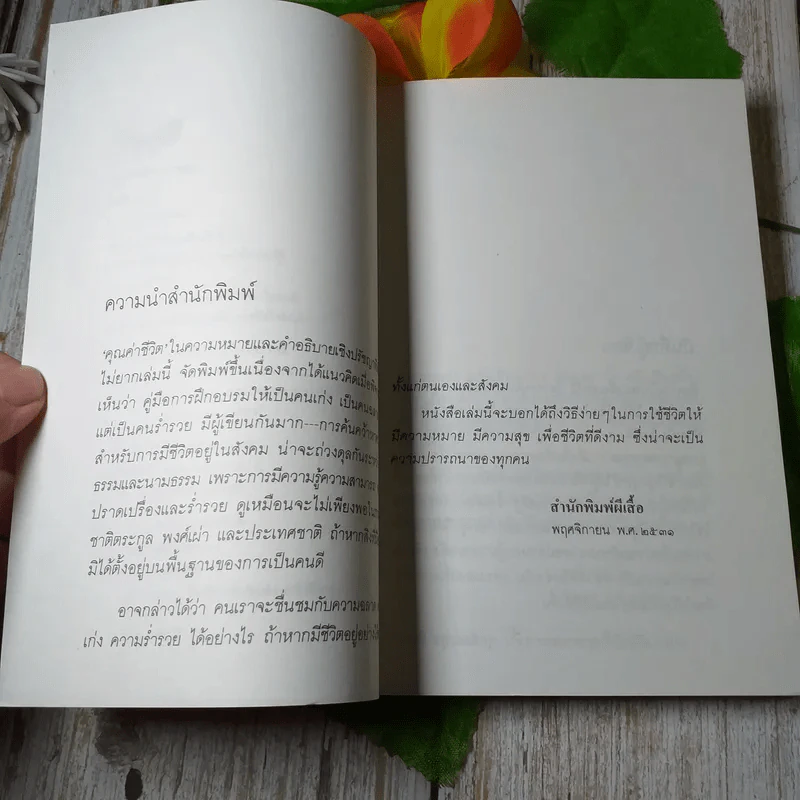 ความนำสำนักพิมพ์
'คุณค่าชีวิต' ในความหมายและคำอธิบายเชิงปรัชญาที่
ไม่ยากเล่มนี้ จัดพิมพ์ขึ้นเนื่องจากได้แนวคิดเมื่อ
เห็นว่า คู่มือการฝึกอบรมให้เป็นคนเก่ง เป็นคน
แต่เป็นคนร่ำรวย มีผู้เขียนกันมาก---การค้นคว้า
สำหรับการมีชีวิตอยู่ในสังคม น่าจะถ่วงดุลกัน
ธรรมและนามธรรม เพราะการมีความรู้ความสามารถ
ปราดเปรื่องและร่ำรวย ดูเหมือนจะไม่เพียงพอ
ชาติตระกูล พงศ์เผ่า และประเทศชาติ ถ้าหาก
มิได้ตั้งอยู่บนพื้นฐานของการเป็นคนดี
อาจกล่าวได้ว่า คนเราจะชื่นชมกับความ
เก่ง ความร่ำรวย ได้อย่างไร ถ้าหากมีชีวิตอยู่
ทั้งแก่ตนเองและสังคม
หนังสือเล่มนี้จะบอกได้ถึงวิธีง่ายๆ ในการใช้ชีวิตให้
มีความหมาย มีความสุข เพื่อชีวิตที่ดีงาม ซึ่งน่าจะเป็น
ความปรารถนาของทุกคน
สำนักพิมพ์ผีเสื้อ
พฤศจิกายน พ.ศ. ๒๕๓๑